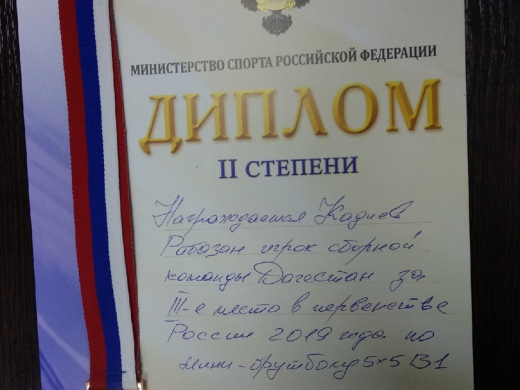 МИНИСТЕРСТВО СПОРТА РОССИЙСКОЙ ФЕДЕРАЦИИ
ДИПЛОМ
II СТЕПЕНИ
Награждается Кадиев
Рабазан игрок сборной
команды Дагестан за
III-е место в первенстве
России 2019 года по
мини-футболу 5x5 B1